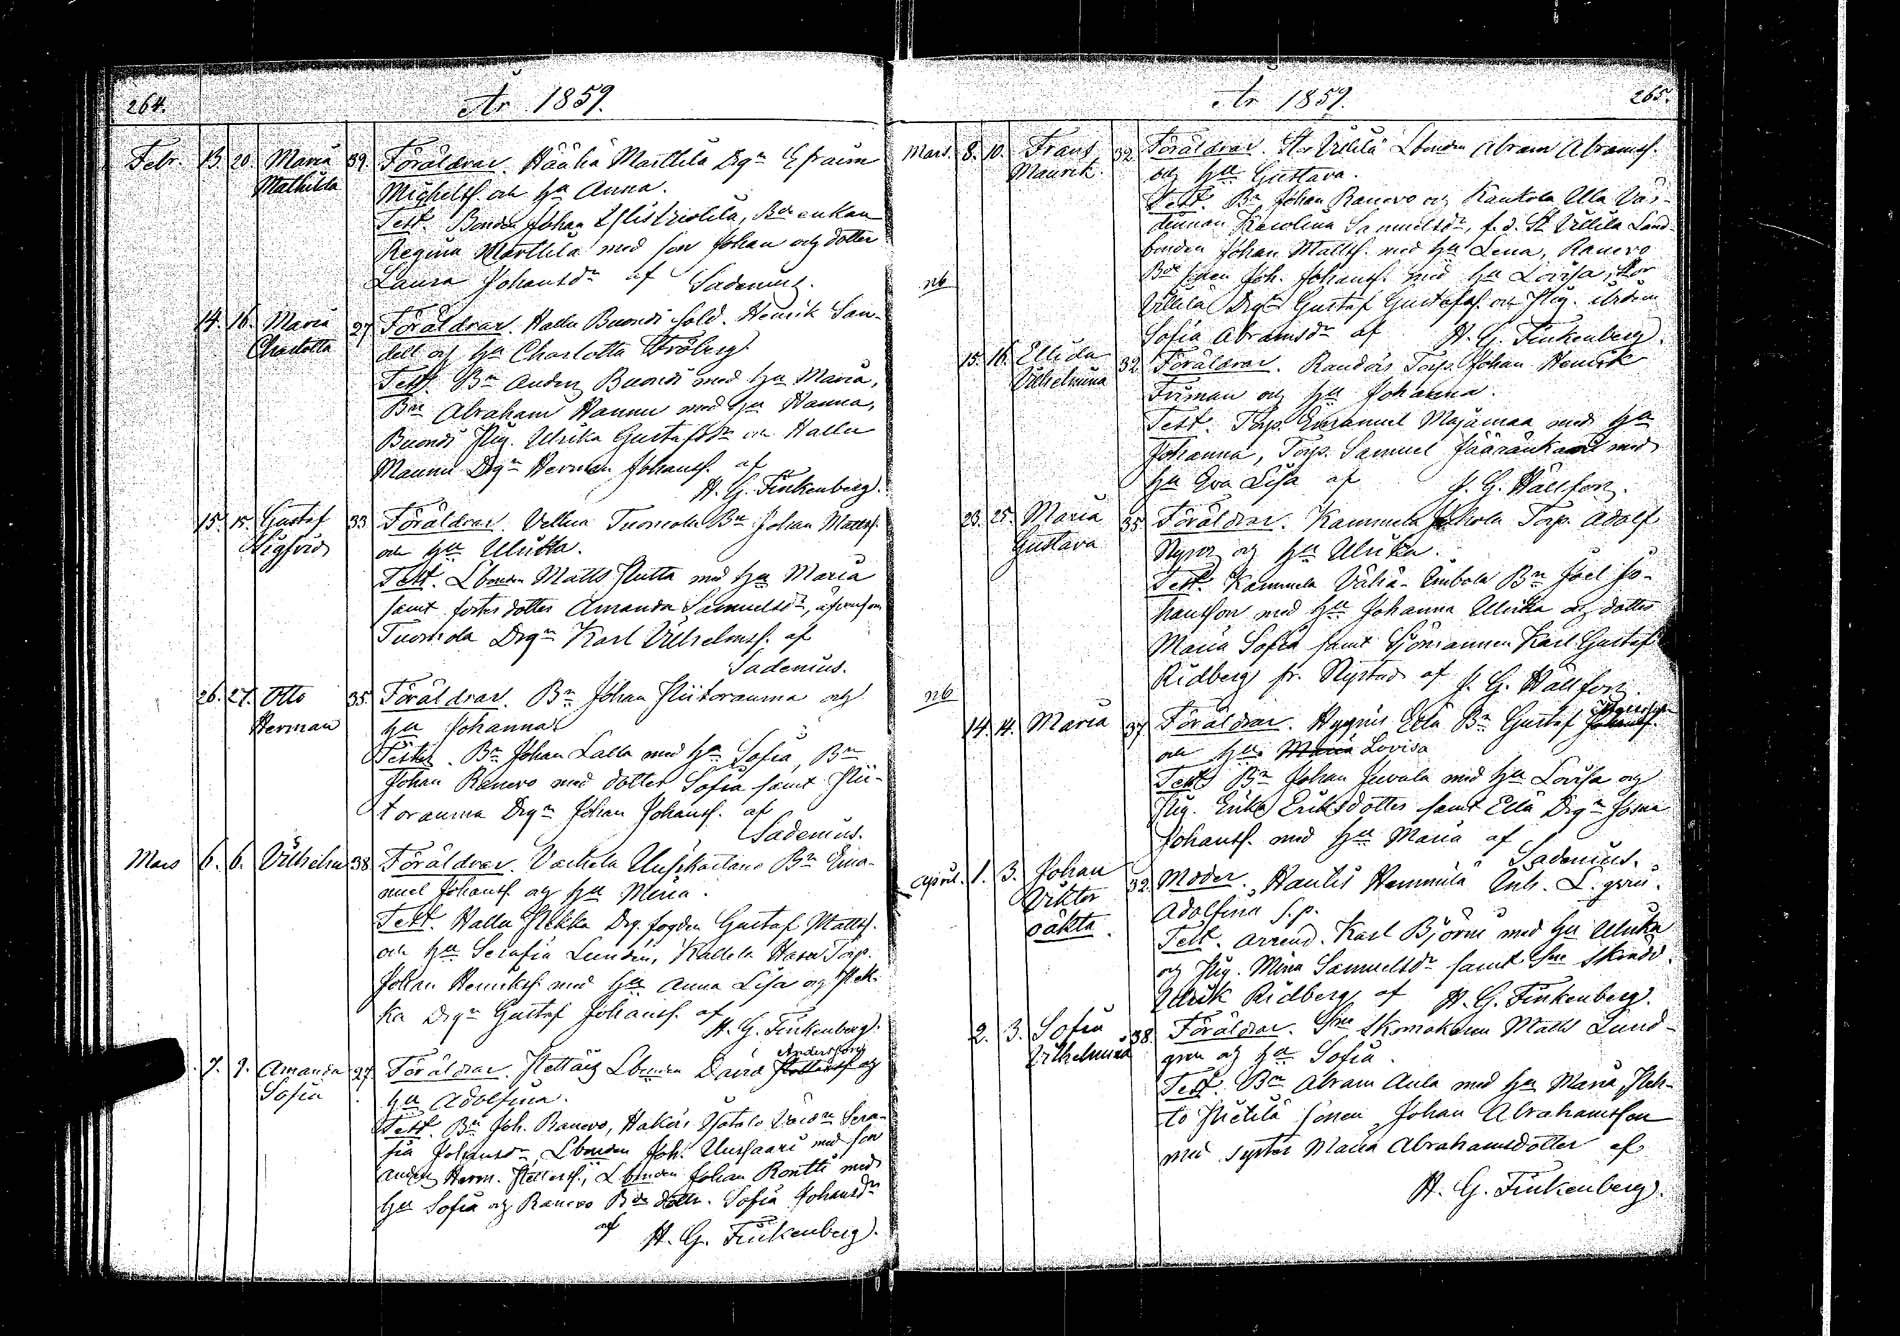 264.
År 1859.
Febr. 13. 20. Maria 39. Föräldrar. Häähä Marttila Drgn Efraim
Mathilda Michelss. och ha Anna.
Test. Bonden Johan Ylistiistilä, Bdeenkan
Regina Marttila med son Johan och dotter
Laura Johansdr af Sadenius.
14. 16. Maria 27 Föräldrar. Hallu Buondi sold. Henrik San-
Charlotta dell och ha Charlotta Ströberg.
Test. Bn Anders Buondi med ha Maria,
Bn Abraham Hannu med ha Hanna,
Buondi Pig. Ulrika Gustafsdr och Hallu
Maunu Drgn Herman Johanss. af
H. G. Finkenberg.
15. 15. Gustaf 33 Föräldrar. Vellua Tuomola Bn Johan Mattss.
Sigfrid och ha Ulrika.
Test. Lbonden Matts Hutta med ha Maria
samt fosterdotter Amanda Samuelsdr,
Tuomola Drgn Karl Vilhelmss. af
Sadenius.
26. 27. Otto 35. Föräldrar. Bn Johan Hiitorauma och
Herman ha Johanna
Testes. Bn Johan Lalla med ha Sofia, Bn
Johan Ranevo med dotter Sofia samt Hii-
torauma Drgn Johan Johanss. af
Sadenius.
Mars 6. 6. Vilhelm 38. Föräldrar. Varhela Uusikartano Bn Ema-
nuel Johanss. och ha Maria.
Test. Hallu Pekka Drg. fogden Gustaf Mattss.
och ha Serafia Lundin, Kallela Harva Torp.
Johan Henrikss. med ha Anna Lisa och Pek-
ka Drgn Gustaf Johanss. af
H. G. Finkenberg.
7. 9. Amanda 27. Föräldrar. Lbonden David Andersson och
Sofia ha Adolfina.
Test. Bn Joh. Ranevo, Värdn Sera-
fia Johansdr, Lbonden Joh. Uussaari med son
Anders Herm. Lbonden Johan Rontti med
ha Sofia och Ranevo Bde dottr. Sofia Johansdr
af H. G. Finkenberg.
År 1859.
265.
Mars. 8. 10. Frans 32. Föräldrar. St. Villilä Lbonden Abram Abramss.
Maurik. och ha Gustava.
Test. Bn Johan Ranevo och Kankola Ulla Vär-
dinnan Karolina Samuelsdr, f. d. St. Villilä Land-
bonden Johan Mattss. med ha Lena, Ranevo
nb Bde sonen Joh. Johanss. med ha Lovisa, Stor
Villilä Drgn Gustaf Gustafss. och Pig.
Sofia Abramsdr af H. G. Finkenberg.
15. 16. Ellida 32. Föräldrar. Randois Torp. Johan Henrik
Vilhelmina Friman och ha Johanna.
Test. Torp. Emanuel Majamaa med ha
Johanna, Torp. Samuel Jääränkant med
ha Eva Lisa af J. G. Hällfors.
23. 25. Maria 35. Föräldrar. Kammela Jokola Torp. Adolf
Gustava Nyroos och ha Ulrika.
Test. Kammela Vähä-Eerola Bn Joel Jo-
hansson med ha Johanna Ulrika och dotter
Maria Sofia samt Sjömannen Karl Gustaf
Ridberg fr. Nystad af J. G. Hällfors.
nb
14. 14. Maria 37. Föräldrar. Hygnis Erlä Bn Gustaf
och ha Maria Lovisa
Test. Bn Johan Juvala med ha Lovisa och
Pig. Erika Eriksdotter samt Ellä Drgn Josua
Johanss. med ha Maria af
Sadenius.
April. 1. 3. Johan 32. Moder. Hautis Hemmilä Inh.
Viktor Adolfina S. p.
oäkta. Test. Arrend. Karl Björni med ha Ulrika
och Pig. Mina Samuelsdr samt Sne Skrädd.
Ulrik Ridberg af H. G. Finkenberg.
2. 3. Sofia 38. Föräldrar. Sne Skomakaren Matts Lund-
Vilhelmina gren och ha Sofia.
Test. Bn Abram Aula med ha Maria, Puh-
to Juttilä sonen Johan Abrahamsson
med syster Maria Abrahamsdotter af
H. G. Finkenberg.